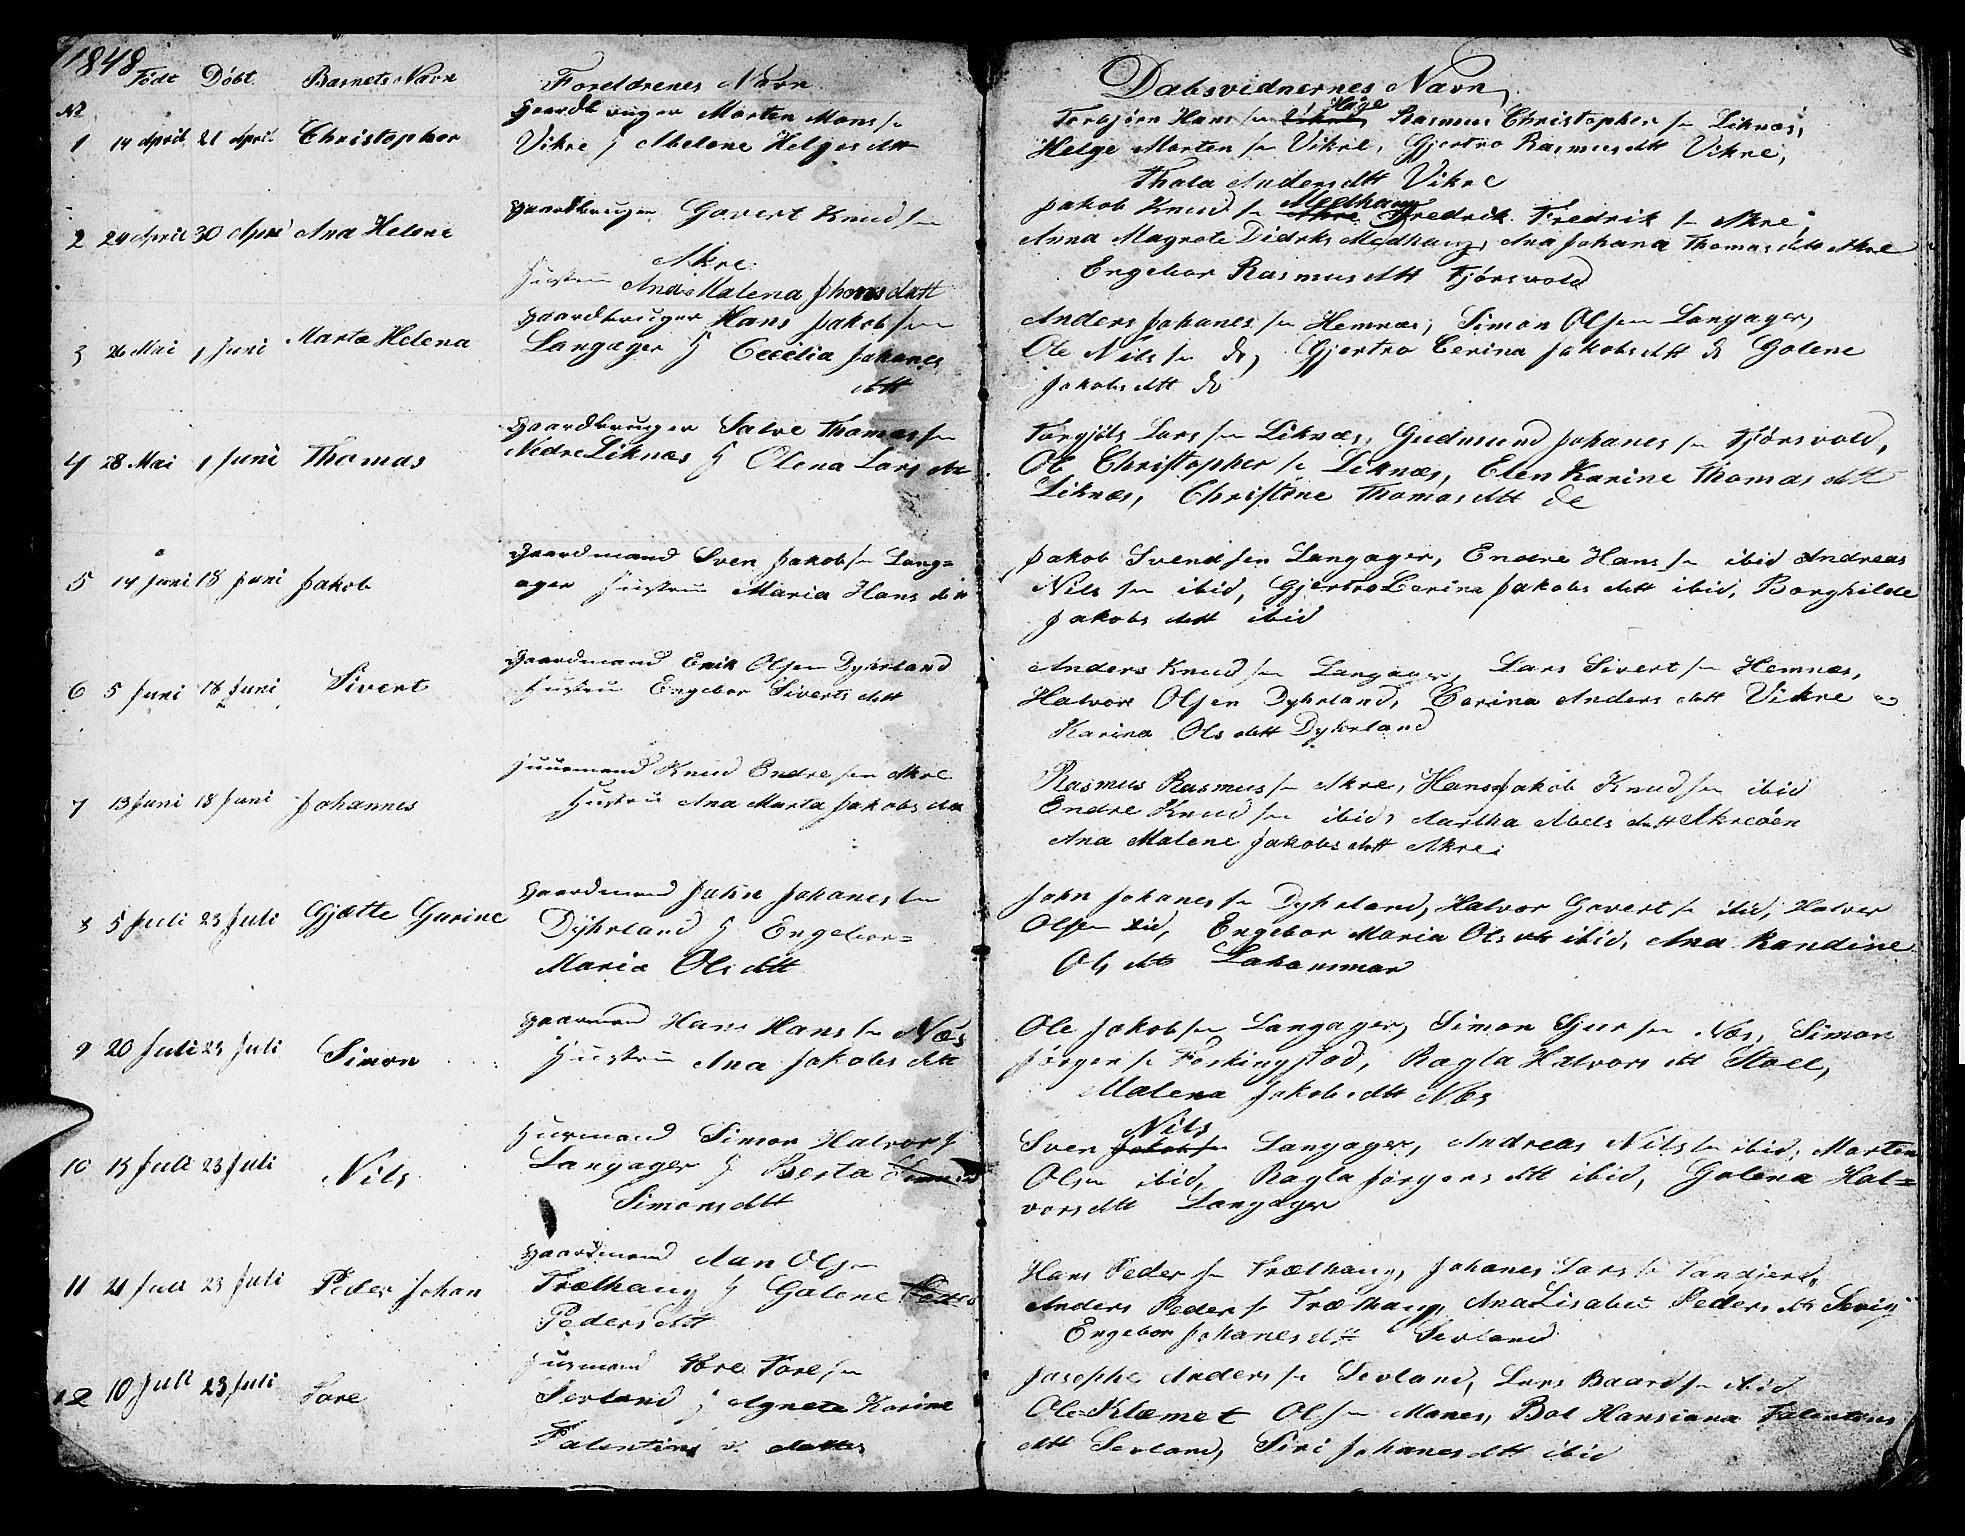 1848
Født Døbt Barnets Navn Foreldrenes Navn Daabsvidnernes Navn
No
1 14 April 21 April Christopher Gaardbruger Morten Mons sn
Vikre H Melene Helges dtt
Torbjørn Hans sn Vikre Høge Rasmus Christopher sn Liknæs,
Helge Morten sn Vikre, Gjertro Rasmus dtt Vikre,
Thala Anders dtt Vikre
2 24 April 30 April Ana Helene Gaardbruger Govert Knud sn
Akre
Hustru Ana Malena Thomsdatt
Jakob Knud sn Akre Medhaug Fredrik Fredrik sn Akre,
Anna Magrete Didriks Medhaug, Ana Johana Thomas dtt Akre
Engebor Rasmus dtt Fjørsvold
3 26 Mai 1 Juni Marta Helena Gaardbruger Hans Jakob sn
Langager H Cecilia Johanes
dtt
Anders Johanes sn Hemnæs, Simon Olsen Langager,
Ole Nils sn do, Gjertro Cerina Jakobs dtt do Golene
Jakobs dtt do
4 28 Mai 1 Juni Thomas Gaardbruger Salve Thomas sn
Nedre Liknæs H Olena Lars dtt
Torgjøls Lars sn Liknæs, Gudmund Johanes sn Fjørsvold,
Ole Christopher sn Liknæs, Elen Karine Thomas dtt
Liknæs, Christene Thomas dtt do
5 14 Juni 18 Juni Jakob Gaardmand Sven Jakob sn Lang=
ager Hustru Maria Hans dtr
Jakob Svendsen Langager, Endre Hans sn ibid Andreas
Nils sn ibid, Gjertro Cerina Jakobs dtt ibid, Borghilde
Jakobs dtt ibid
6 5 Juni 18 Juni Sivert Gaardmand Erik Olsen Dyhrland
Hustru Engebor Siverts dtt
Anders Knud sn Langager, Lars Sivert sn Hemnæs,
Halvor Olsen Dyhrland, Cerina Anders dtt Vikre
Karina Ols dtt Dyhrland
7 13 Juni 18 Juni Johannes Huusmand Knud Endre sen Akre
Hustru Ana Marta Jakobs dtt
Rasmus Rasmus sn Akre, Hans Jakob Knud sn ibid
Endre Knud sn ibid, Martha Abels datt Akreøen
Ana Malene Jakobs datt Akre
8 5 Juli 23 Juli Gjætte Gurine Gaardmand Jahn Johanes sn
Dyhrland H Engebor=
Maria Ols dtt
John Johanes sn Dyhrland, Halvor Govert sn ibid, Halvor
Olsen ibid, Engebor Maria Ols dtt ibid, Ana Randine
Ols dtt Lahammar
9 20 Juli 23 Juli Simon Gaarmand Hans Hans sn Næs
Hustru Ana Jakobs dtt
Ole Jakob sn Langager, Simon Sjur sn Næs, Simon
Jørgen sn Foskingstad, Ragla Halvors dtt Stoel,
Malena Jakobs dtt Næs
10 15 Juli 23 Juli Nils Husmand Simon Halvor sn
Langager H Berta
Simons dtt
Sven Jakob sn Nils Langager, Andreas Nils sn ibid, Morten
Olsen ibid, Ragla Jørgens dtt ibid, Golena Hal=
vors dtt Langager
11 21 Juli 23 Juli Peder Johan Gaardmand Aan Olsen
Trælhaug H Golene Peders
Peders dtt
Hans Peder sn Trælhaug, Johanes Lars sn
Anders Peder sn Trælhaug, Ana Lisabet Peders dtt
Engebor Johanes dtt Sevland
12 10 Juli 23 Juli Tore Husmand Tore Tore sn
Sevland H Agnete Karine
Falentins datter
Josephe Anders sn Sevland, Lars Baard sn ibid
Ole Klæmet Olsen Manes, Bol Hansiana Falentins
dtt Sevland, Siri Johanes dtt ibid